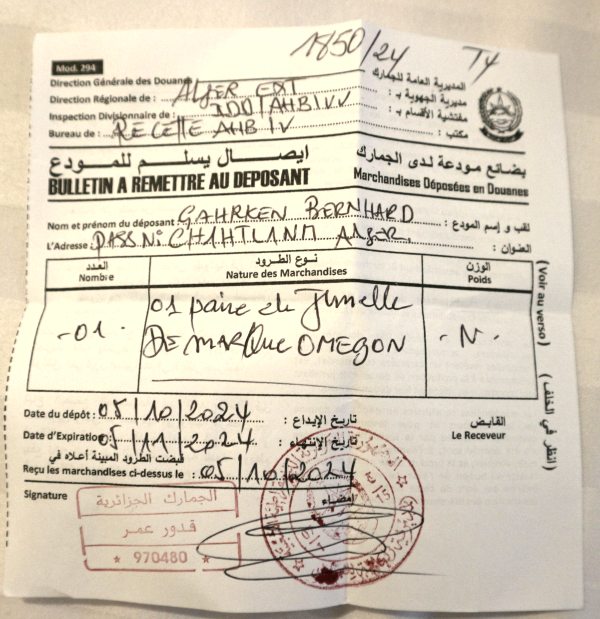 1850/24 T4
Mod. 294
Direction Générale des Douanes المديرية العامة للجمارك
Direction Régionale de : ALGER EXT مديرية الجهوية بـ :
Inspection Divisionnaire de : مفتشية الأقسام بـ :
Bureau de : RECETTE AHB IV مكتب :
ايصال يسلم للمودع بضائع مودعة لدى الجمارك
BULLETIN A REMETTRE AU DEPOSANT Marchandises Déposées en Douanes
Nom et prénom du déposant GAHRKEN BERNHARD لقب و إسم المودع :
L'Adresse : PASS N: ALGER. العنوان :
العدد نوع الطرود الوزن
Nombre Nature des Marchandises Poids
-01- 01 paire de Jumelle - N -
DE MARQUE OMEGON
(Voir au verso)
(أنظر في الخلف)
Date du dépôt : 05/10/2024 تاريخ الإيداع : القابض
Date d'Expiration 05/11/2024 تاريخ الإنتهاء : Le Receveur
قبضت الطرود المبينة أعلاه في
Reçu les marchandises ci-dessus le : 05/10/2024
Signature إمضاء
الجمارك الجزائرية
قدور عمر
* 970480 *